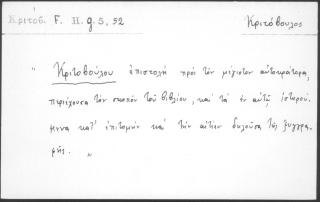 Κριτοβ. F. H. g. 5, 52
Κριτόβουλος
" Κριτοβούλου ἐπιστολὴ πρὸς τὸν μέγιστον αὐτοκράτορα,
περιέχουσα τὸν σκοπὸν τοῦ βιβλίου, καὶ τὰ ἐν αὐτῷ ἱστορού-
μενα κατ' ἐπιτομὴν καὶ τὴν αἰτίαν δηλοῦσα τῆς ξυγγρα-
φῆς. "